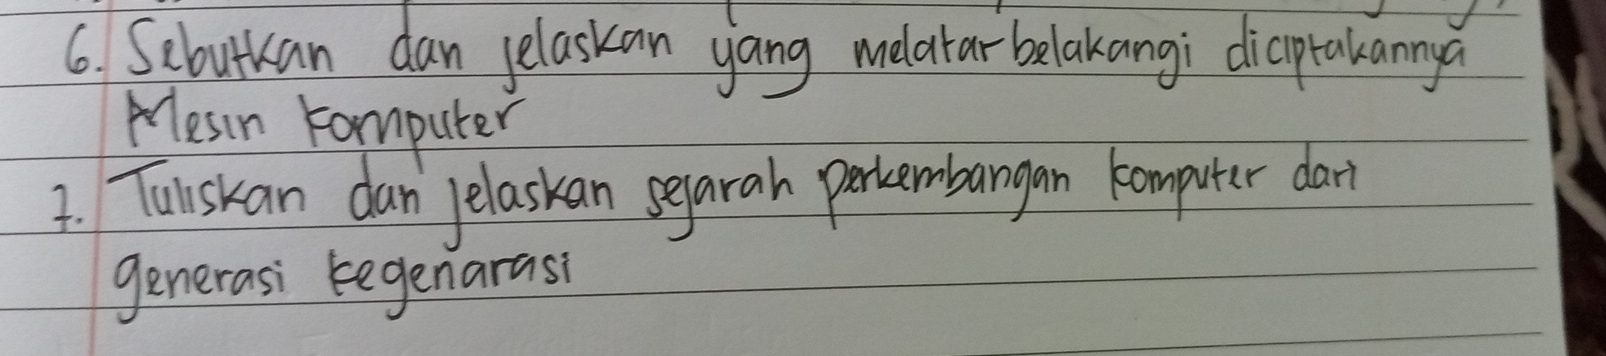 6. Sebutkan dan jelaskan yang melatar belakangi diciptakannya
Mesin komputer
7. Tuliskan dan jelaskan sejarah perkembangan komputer dari
generasi kegenarasi